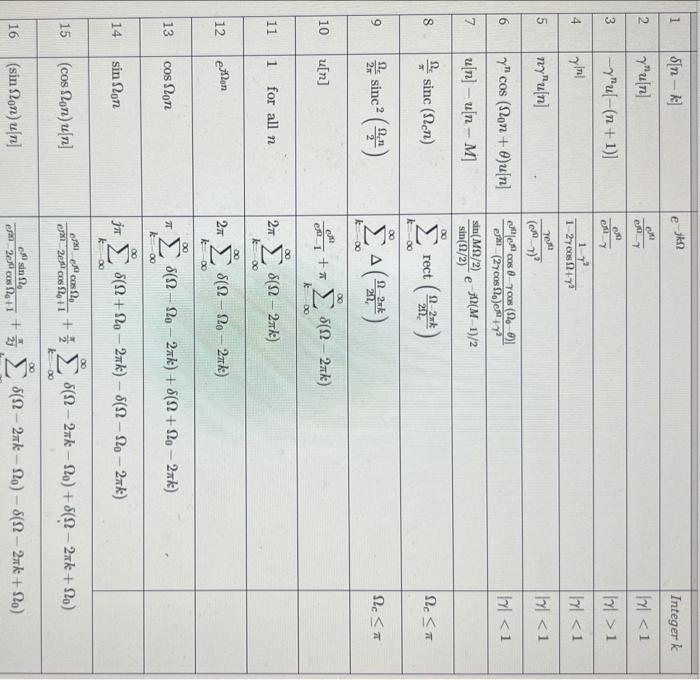 1 δ[n − k] e^{−jkΩ} Integer k
2 γⁿu[n] e^{jΩ}/(e^{jΩ}−γ) |γ| < 1
3 −γⁿu[−(n + 1)] e^{jΩ}/(e^{jΩ}−γ) |γ| > 1
4 γ^{|n|} (1−γ²)/(1−2γ cos Ω+γ²) |γ| < 1
5 nγⁿu[n] γe^{jΩ}/(e^{jΩ}−γ)² |γ| < 1
6 γⁿ cos (Ω₀n + θ)u[n] e^{jΩ}[e^{jΩ} cos θ−γ cos (Ω₀−θ)]/(e^{j2Ω}−(2γ cos Ω₀)e^{jΩ}+γ²) |γ| < 1
7 u[n] − u[n − M] sin(MΩ/2)/sin(Ω/2) e^{−jΩ(M−1)/2}
8 Ω_c/π sinc (Ω_c n) ∑_{k=−∞}^{∞} rect ((Ω−2πk)/(2Ω_c)) Ω_c ≤ π
9 Ω_c/2π sinc² (Ω_c n/2) ∑_{k=−∞}^{∞} Δ ((Ω−2πk)/(2Ω_c)) Ω_c ≤ π
10 u[n] e^{jΩ}/(e^{jΩ}−1) + π ∑_{k=−∞}^{∞} δ(Ω − 2πk)
11 1 for all n 2π ∑_{k=−∞}^{∞} δ(Ω − 2πk)
12 e^{jΩ₀n} 2π ∑_{k=−∞}^{∞} δ(Ω − Ω₀ − 2πk)
13 cos Ω₀n π ∑_{k=−∞}^{∞} δ(Ω − Ω₀ − 2πk) + δ(Ω + Ω₀ − 2πk)
14 sin Ω₀n jπ ∑_{k=−∞}^{∞} δ(Ω + Ω₀ − 2πk) − δ(Ω − Ω₀ − 2πk)
15 (cos Ω₀n) u[n] (e^{j2Ω}−e^{jΩ} cos Ω₀)/(e^{j2Ω}−2e^{jΩ} cos Ω₀+1) + π/2 ∑_{k=−∞}^{∞} δ(Ω − 2πk − Ω₀) + δ(Ω − 2πk + Ω₀)
16 (sin Ω₀n) u[n] e^{jΩ} sin Ω₀/(e^{j2Ω}−2e^{jΩ} cos Ω₀+1) + π/2j ∑^{∞} δ(Ω − 2πk − Ω₀) − δ(Ω − 2πk + Ω₀)